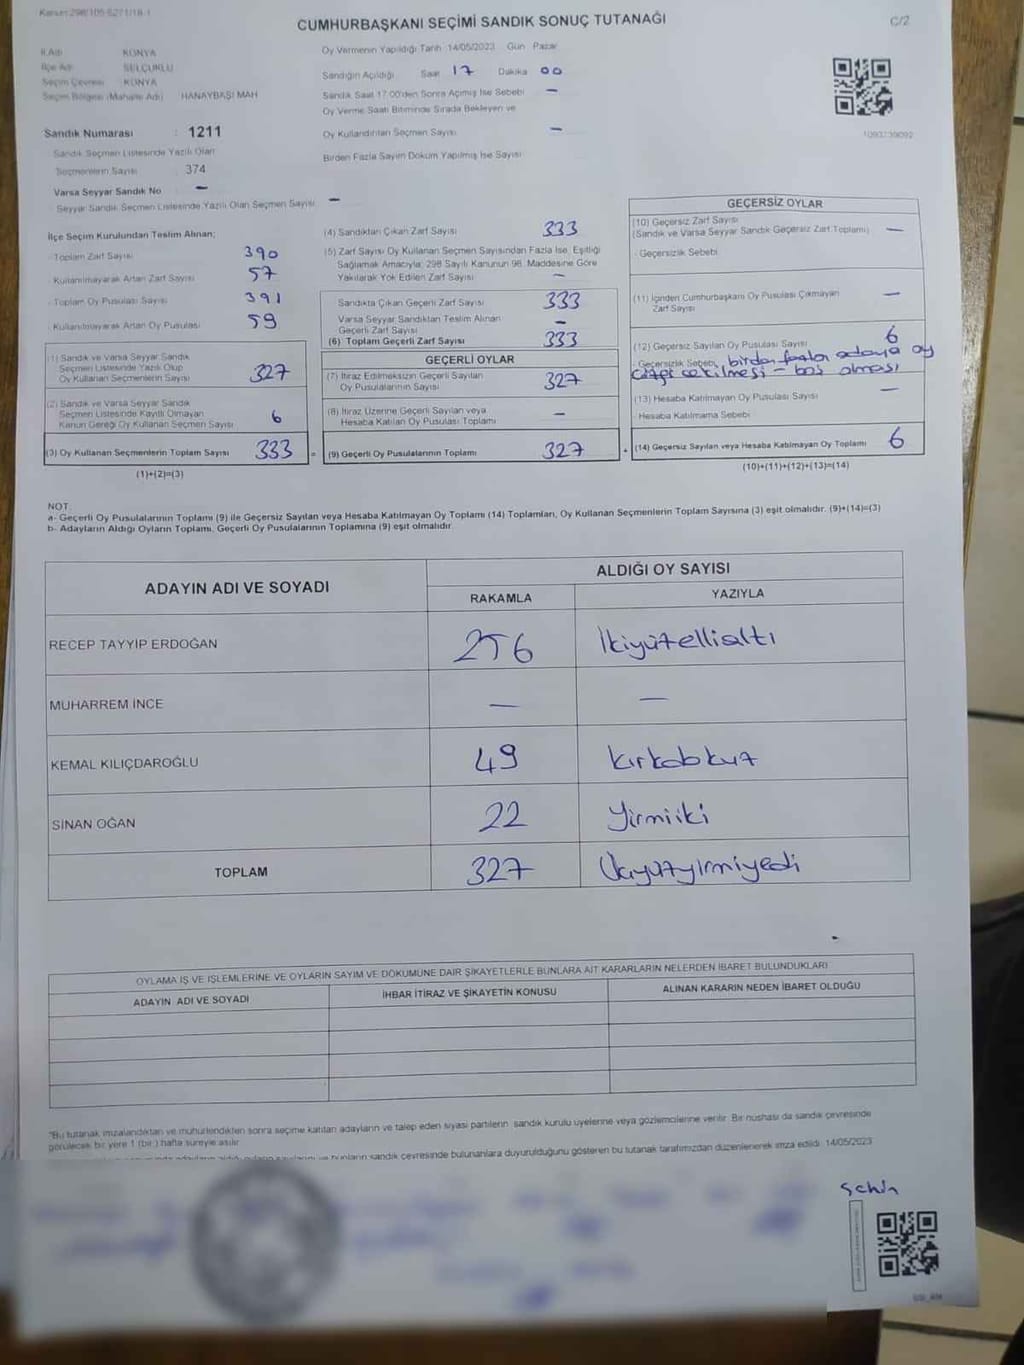 Kanun:298/105-6271/18-1
CUMHURBAŞKANI SEÇİMİ SANDIK SONUÇ TUTANAĞI
C/2
İl Adı KONYA
İlçe Adı SELÇUKLU
Seçim Çevresi KONYA
Seçim Bölgesi (Mahalle Adı) HANAYBAŞI MAH
Sandık Numarası : 1211
Sandık Seçmen Listesinde Yazılı Olan
Seçmenlerin Sayısı 374
Varsa Seyyar Sandık No –
Seyyar Sandık Seçmen Listesinde Yazılı Olan Seçmen Sayısı –
Oy Vermenin Yapıldığı Tarih 14/05/2023 Gün Pazar
Sandığın Açıldığı Saat 17 Dakika 00
Sandık Saat 17:00'den Sonra Açılmış İse Sebebi –
Oy Verme Saati Bitiminde Sırada Bekleyen ve
Oy Kullandırılan Seçmen Sayısı –
Birden Fazla Sayım Döküm Yapılmış İse Sayısı
1093739092
İlçe Seçim Kurulundan Teslim Alınan;
Toplam Zarf Sayısı 390
Kullanılmayarak Artan Zarf Sayısı 57
Toplam Oy Pusulası Sayısı 391
Kullanılmayarak Artan Oy Pusulası 59
(1) Sandık ve Varsa Seyyar Sandık
Seçmen Listesinde Yazılı Olup
Oy Kullanan Seçmenlerin Sayısı 327
(2) Sandık ve Varsa Seyyar Sandık
Seçmen Listesinde Kayıtlı Olmayan
Kanun Gereği Oy Kullanan Seçmen Sayısı 6
(3) Oy Kullanan Seçmenlerin Toplam Sayısı 333
(1)+(2)=(3)
(4) Sandıktan Çıkan Zarf Sayısı 333
(5) Zarf Sayısı Oy Kullanan Seçmen Sayısından Fazla İse, Eşitliği
Sağlamak Amacıyla; 298 Sayılı Kanunun 98. Maddesine Göre
Yakılarak Yok Edilen Zarf Sayısı –
Sandıkta Çıkan Geçerli Zarf Sayısı 333
Varsa Seyyar Sandıktan Teslim Alınan
Geçerli Zarf Sayısı –
(6) Toplam Geçerli Zarf Sayısı 333
GEÇERLİ OYLAR
(7) İtiraz Edilmeksizin Geçerli Sayılan
Oy Pusulalarının Sayısı 327
(8) İtiraz Üzerine Geçerli Sayılan veya
Hesaba Katılan Oy Pusulası Toplamı –
= (9) Geçerli Oy Pusulalarının Toplamı 327
GEÇERSİZ OYLAR
(10) Geçersiz Zarf Sayısı
(Sandık ve Varsa Seyyar Sandık Geçersiz Zarf Toplamı) –
Geçersizlik Sebebi
(11) İçinden Cumhurbaşkanı Oy Pusulası Çıkmayan
Zarf Sayısı –
(12) Geçersiz Sayılan Oy Pusulası Sayısı 6
Geçersizlik Sebebi birden fazla adaya oy
çizgi çekilmesi – boş olması
(13) Hesaba Katılmayan Oy Pusulası Sayısı –
Hesaba Katılmama Sebebi
+ (14) Geçersiz Sayılan veya Hesaba Katılmayan Oy Toplamı 6
(10)+(11)+(12)+(13)=(14)
NOT:
a- Geçerli Oy Pusulalarının Toplamı (9) ile Geçersiz Sayılan veya Hesaba Katılmayan Oy Toplamı (14) Toplamları, Oy Kullanan Seçmenlerin Toplam Sayısına (3) eşit olmalıdır. (9)+(14)=(3)
b- Adayların Aldığı Oyların Toplamı, Geçerli Oy Pusulalarının Toplamına (9) eşit olmalıdır.
ADAYIN ADI VE SOYADI
ALDIĞI OY SAYISI
RAKAMLA YAZIYLA
RECEP TAYYİP ERDOĞAN 256 İkiyüzellialtı
MUHARREM İNCE – –
KEMAL KILIÇDAROĞLU 49 kırkdokuz
SİNAN OĞAN 22 Yirmiiki
TOPLAM 327 Üçyüzyirmiyedi
OYLAMA İŞ VE İŞLEMLERİNE VE OYLARIN SAYIM VE DÖKÜMÜNE DAİR ŞİKAYETLERLE BUNLARA AİT KARARLARIN NELERDEN İBARET BULUNDUKLARI
ADAYIN ADI VE SOYADI İHBAR İTİRAZ VE ŞİKAYETİN KONUSU ALINAN KARARIN NEDEN İBARET OLDUĞU
"Bu tutanak imzalandıktan ve mühürlendikten sonra seçime katılan adayların ve talep eden siyasi partilerin sandık kurulu üyelerine veya gözlemcilerine verilir. Bir nüshası da sandık çevresinde
görülecek bir yere 1 (bir) hafta süreyle asılır.
sandık çevresinde bulunanlara duyurulduğunu gösteren bu tutanak tarafımızdan düzenlenerek imza edildi. 14/05/2023